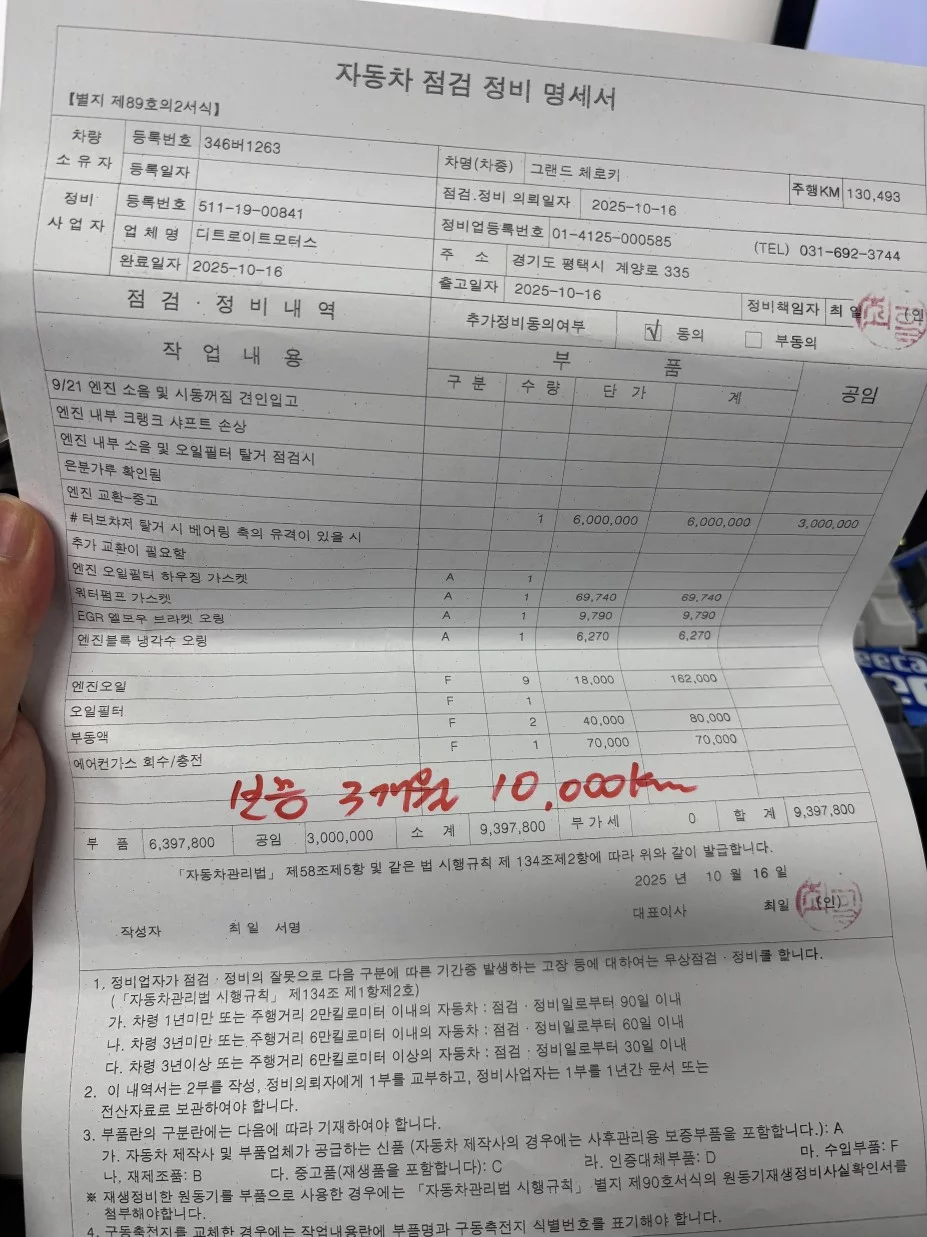 자동차 점검 정비 명세서
【별지 제89호의2서식】
차량 소유자 등록번호 346버1263 차명(차종) 그랜드 체로키 주행KM 130,493
등록일자 점검.정비 의뢰일자 2025-10-16
정비 사업자 등록번호 511-19-00841 정비업등록번호 01-4125-000585 (TEL) 031-692-3744
업체명 디트로이트모터스 주 소 경기도 평택시 계양로 335
완료일자 2025-10-16 출고일자 2025-10-16 정비책임자 최 일 (인
점검·정비내역 추가정비동의여부 √ 동의 부동의
작업내용 부 품 공임
구 분 수 량 단 가 계
9/21 엔진 소음 및 시동꺼짐 견인입고
엔진 내부 크랭크 샤프트 손상
엔진 내부 소음 및 오일필터 탈거 점검시
은분가루 확인됨
엔진 교환-중고 1 6,000,000 6,000,000 3,000,000
# 터보차저 탈거 시 베어링 축의 유격이 있을 시
추가 교환이 필요함
엔진 오일필터 하우징 가스켓 A 1
워터펌프 가스켓 A 1 69,740 69,740
EGR 엘보우 브라켓 오링 A 1 9,790 9,790
엔진블록 냉각수 오링 A 1 6,270 6,270
엔진오일 F 9 18,000 162,000
오일필터 F 1
부동액 F 2 40,000 80,000
에어컨가스 회수/충전 F 1 70,000 70,000
보증 3개월 10,000km
부 품 6,397,800 공임 3,000,000 소 계 9,397,800 부가세 0 합 계 9,397,800
「자동차관리법」 제58조제5항 및 같은 법 시행규칙 제 134조제2항에 따라 위와 같이 발급합니다.
2025 년 10 월 16 일
작성자 최 일 서명 대표이사 최일 (인)
1. 정비업자가 점검·정비의 잘못으로 다음 구분에 따른 기간중 발생하는 고장 등에 대하여는 무상점검·정비를 합니다.
(「자동차관리법 시행규칙」 제134조 제1항제2호)
가. 차령 1년미만 또는 주행거리 2만킬로미터 이내의 자동차 : 점검·정비일로부터 90일 이내
나. 차령 3년미만 또는 주행거리 6만킬로미터 이내의 자동차 : 점검·정비일로부터 60일 이내
다. 차령 3년이상 또는 주행거리 6만킬로미터 이상의 자동차 : 점검·정비일로부터 30일 이내
2. 이 내역서는 2부를 작성, 정비의뢰자에게 1부를 교부하고, 정비사업자는 1부를 1년간 문서 또는
전산자료로 보관하여야 합니다.
3. 부품란의 구분란에는 다음에 따라 기재하여야 합니다.
가. 자동차 제작사 및 부품업체가 공급하는 신품 (자동차 제작사의 경우에는 사후관리용 보증부품을 포함합니다.): A
나, 재제조품: B 다. 중고품(재생품을 포함합니다): C 라. 인증대체부품: D 마. 수입부품: F
※ 재생정비한 원동기를 부품으로 사용한 경우에는 「자동차관리법 시행규칙」 별지 제90호서식의 원동기재생정비사실확인서를
첨부해야합니다.
4. 구동축전지를 교체한 경우에는 작업내용란에 부품명과 구동축전지 식별번호를 표기해야 합니다.